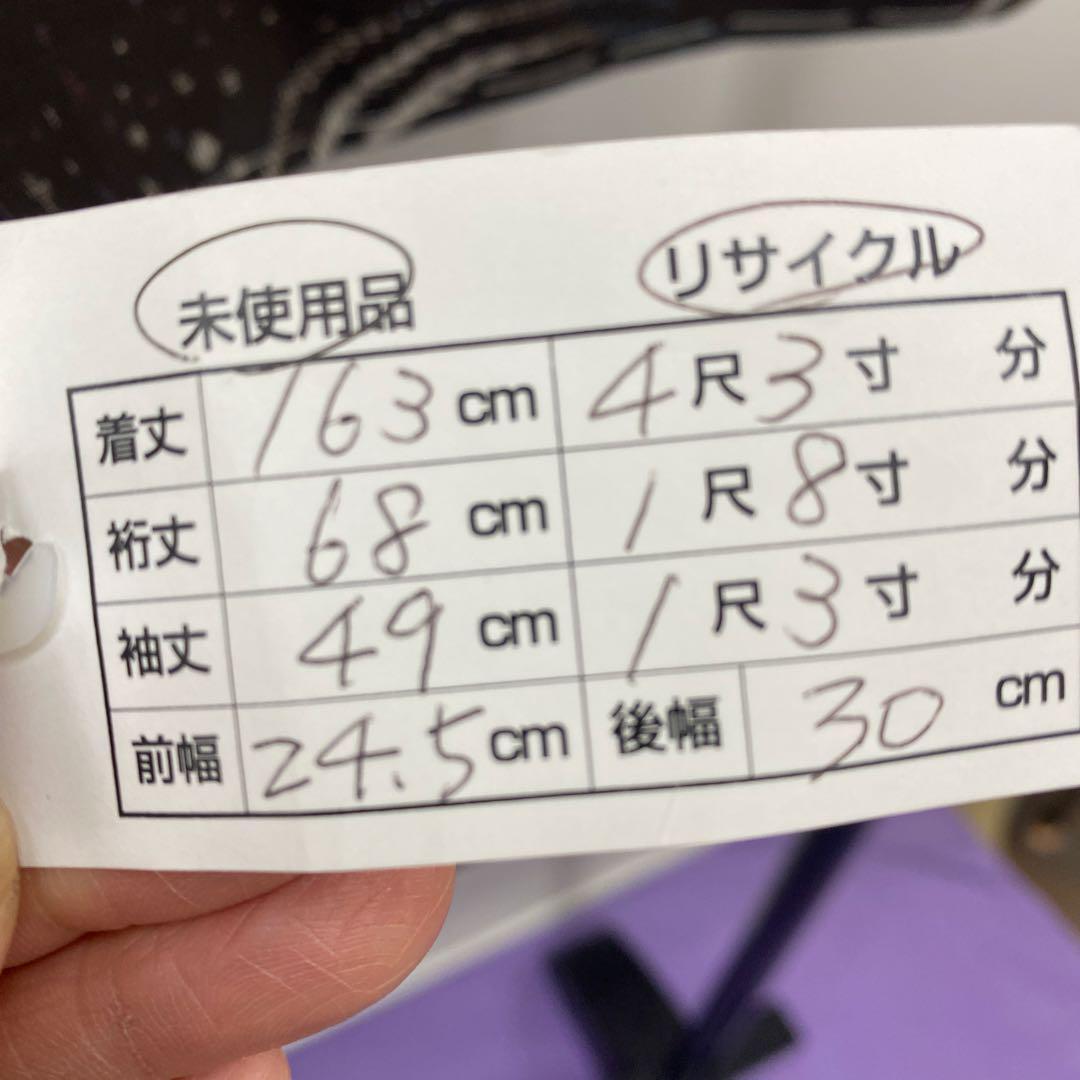 未使用品 リサイクル
着丈 163 cm 4 尺 3 寸 分
裄丈 68 cm 1 尺 8 寸 分
袖丈 49 cm 1 尺 3 寸 分
前幅 24.5 cm 後幅 30 cm